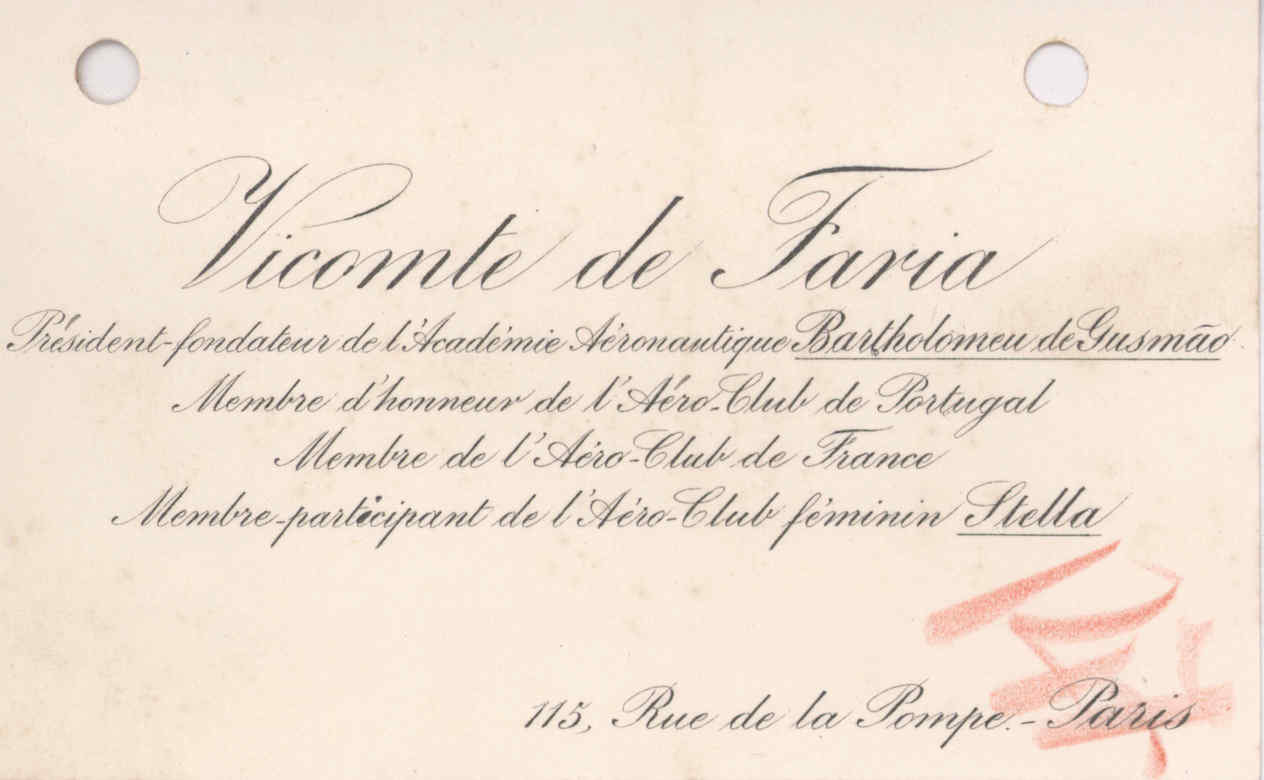 Vicomte de Faria
Président-fondateur de l'Académie Aéronautique Bartholomeu de Gusmão
Membre d'honneur de l'Aéro-Club de Portugal
Membre de l'Aéro-Club de France
Membre-participant de l'Aéro-Club féminin Stella
115, Rue de la Pompe.-Paris